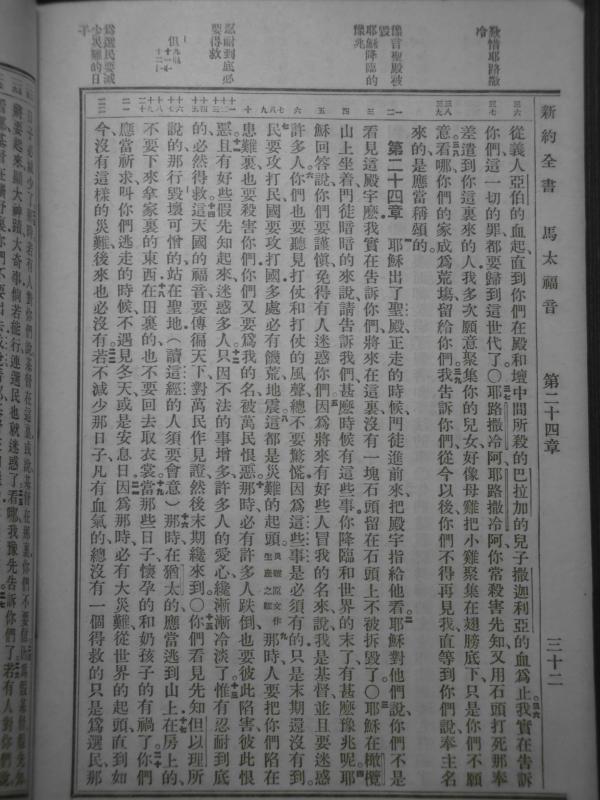 新約全書 馬太福音 第二十四章 三十二
歎惜耶路撒
冷
豫言聖殿被
毀
耶穌降臨的
豫兆
忍耐到底必
要得救
但九
爲選民要減
少災難的日
子
從義人亞伯的血起直到你們在殿和壇中間所殺的巴拉加的兒子撒迦利亞的血爲止我實在告訴
你們這一切的罪都要歸到這世代了〇耶路撒冷阿耶路撒冷阿你常殺害先知又用石頭打死那奉
差遣到你這裏來的人我多次願意聚集你的兒女好像母雞把小雞聚集在翅膀底下只是你們不願
意看哪你們的家成爲荒場留給你們我告訴你們從今以後你們不得再見我直等到你們說奉主名
來的是應當稱頌的
第二十四章 耶穌出了聖殿正走的時候門徒進前來把殿宇指給他看耶穌對他們說你們不是
看見這殿宇麽我實在告訴你們將來在這裏沒有一塊石頭留在石頭上不被拆毀了〇耶穌在橄欖
山上坐着門徒暗暗的來說請告訴我們甚麽時候有這些事你降臨和世界的末了有甚麽豫兆呢耶
穌回答說你們要謹愼免得有人迷惑你們因爲將來有好些人冒我的名來說我是基督並且要迷惑
許多人你們也要聽見打仗和打仗的風聲總不要驚慌因爲這些事是必須有的只是末期還沒有到
民要攻打民國要攻打國多處必有饑荒地震這都是災難的起頭災難原文作生產之難那時人要把你們陷在
患難裏也要殺害你們你們又要爲我的名被萬民恨惡那時必有許多人跌倒也要彼此陷害彼此恨
惡且有好些假先知起來迷惑多人只因不法的事增多許多人的愛心纔漸漸冷淡了惟有忍耐到底
的必然得救這天國的福音要傳徧天下對萬民作見證然後末期纔來到〇你們看見先知但以理所
說的那行毀壞可憎的站在聖地（讀這經的人須要會意）那時在猶太的應當逃到山上在房上的
不要下來拿家裏的東西在田裏的也不要回去取衣裳當那些日子懷孕的和奶孩子的有禍了你們
應當祈求叫你們逃走的時候不遇見冬天或是安息日因爲那時必有大災難從世界的起頭直到如
今沒有這樣的災難後來也必沒有若不減少那日子凡有血氣的總沒有一個得救的只是爲選民那